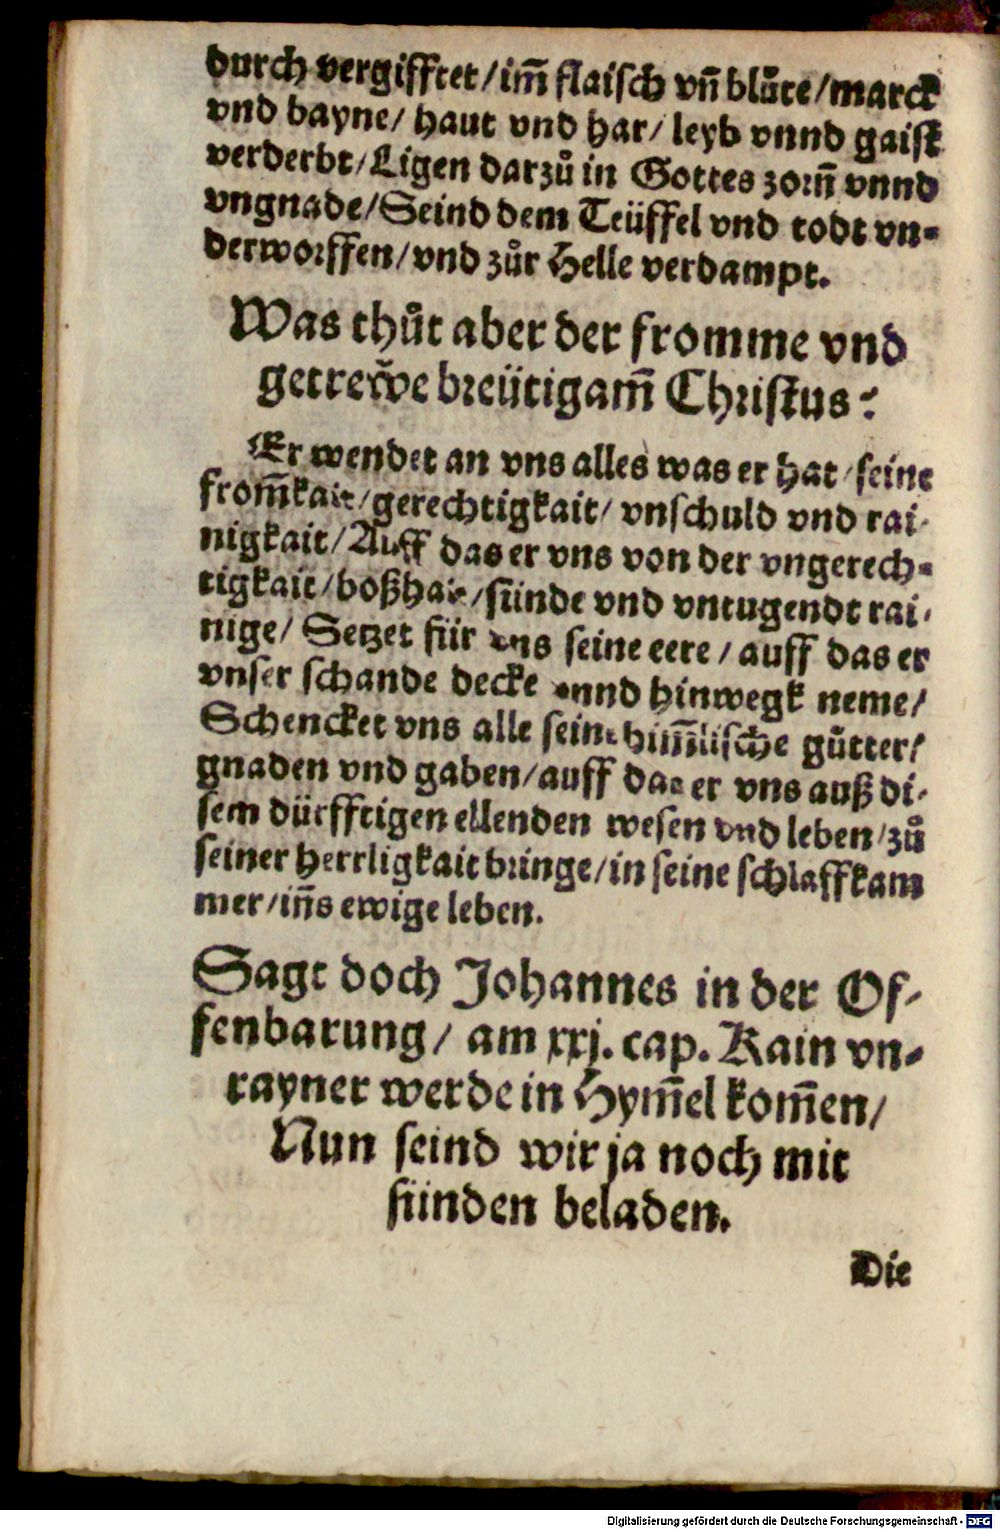 durch vergifftet/im̃ flaisch vñ blůte/marck
vnd bayne/ haut vnd har/ leyb vnnd gaist
verderbt/Ligen darzů in Gottes zorñ vnnd
vngnade/Seind dem Teüffel vnd todt vn-
derworffen/vnd zůr Helle verdampt.
Was thůt aber der fromme vnd
getrew̌e breütigam̃ Christus?
Er wendet an vns alles was er hat/seine
from̃kait/gerechtigkait/ vnschuld vnd rai-
nigkait/Auff das er vns von der vngerech-
tigkait/boßhait/sünde vnd vntugendt rai-
nige/ Setzet für vns seine eere/ auff das er
vnser schande decke vnnd hinwegk neme/
Schencket vns alle seine him̃lische gůtter/
gnaden vnd gaben/auff das er vns auß di-
sem dürfftigen ellenden wesen vnd leben/zů
seiner herrligkait bringe/in seine schlaffkam
mer/iñs ewige leben.
Sagt doch Johannes in der Of-
fenbarung/ am xxj. cap. Kain vn-
rayner werde in Hym̃el kom̃en/
Nun seind wir ja noch mit
sünden beladen.
Die
Digitalisierung gefördert durch die Deutsche Forschungsgemeinschaft - DFG